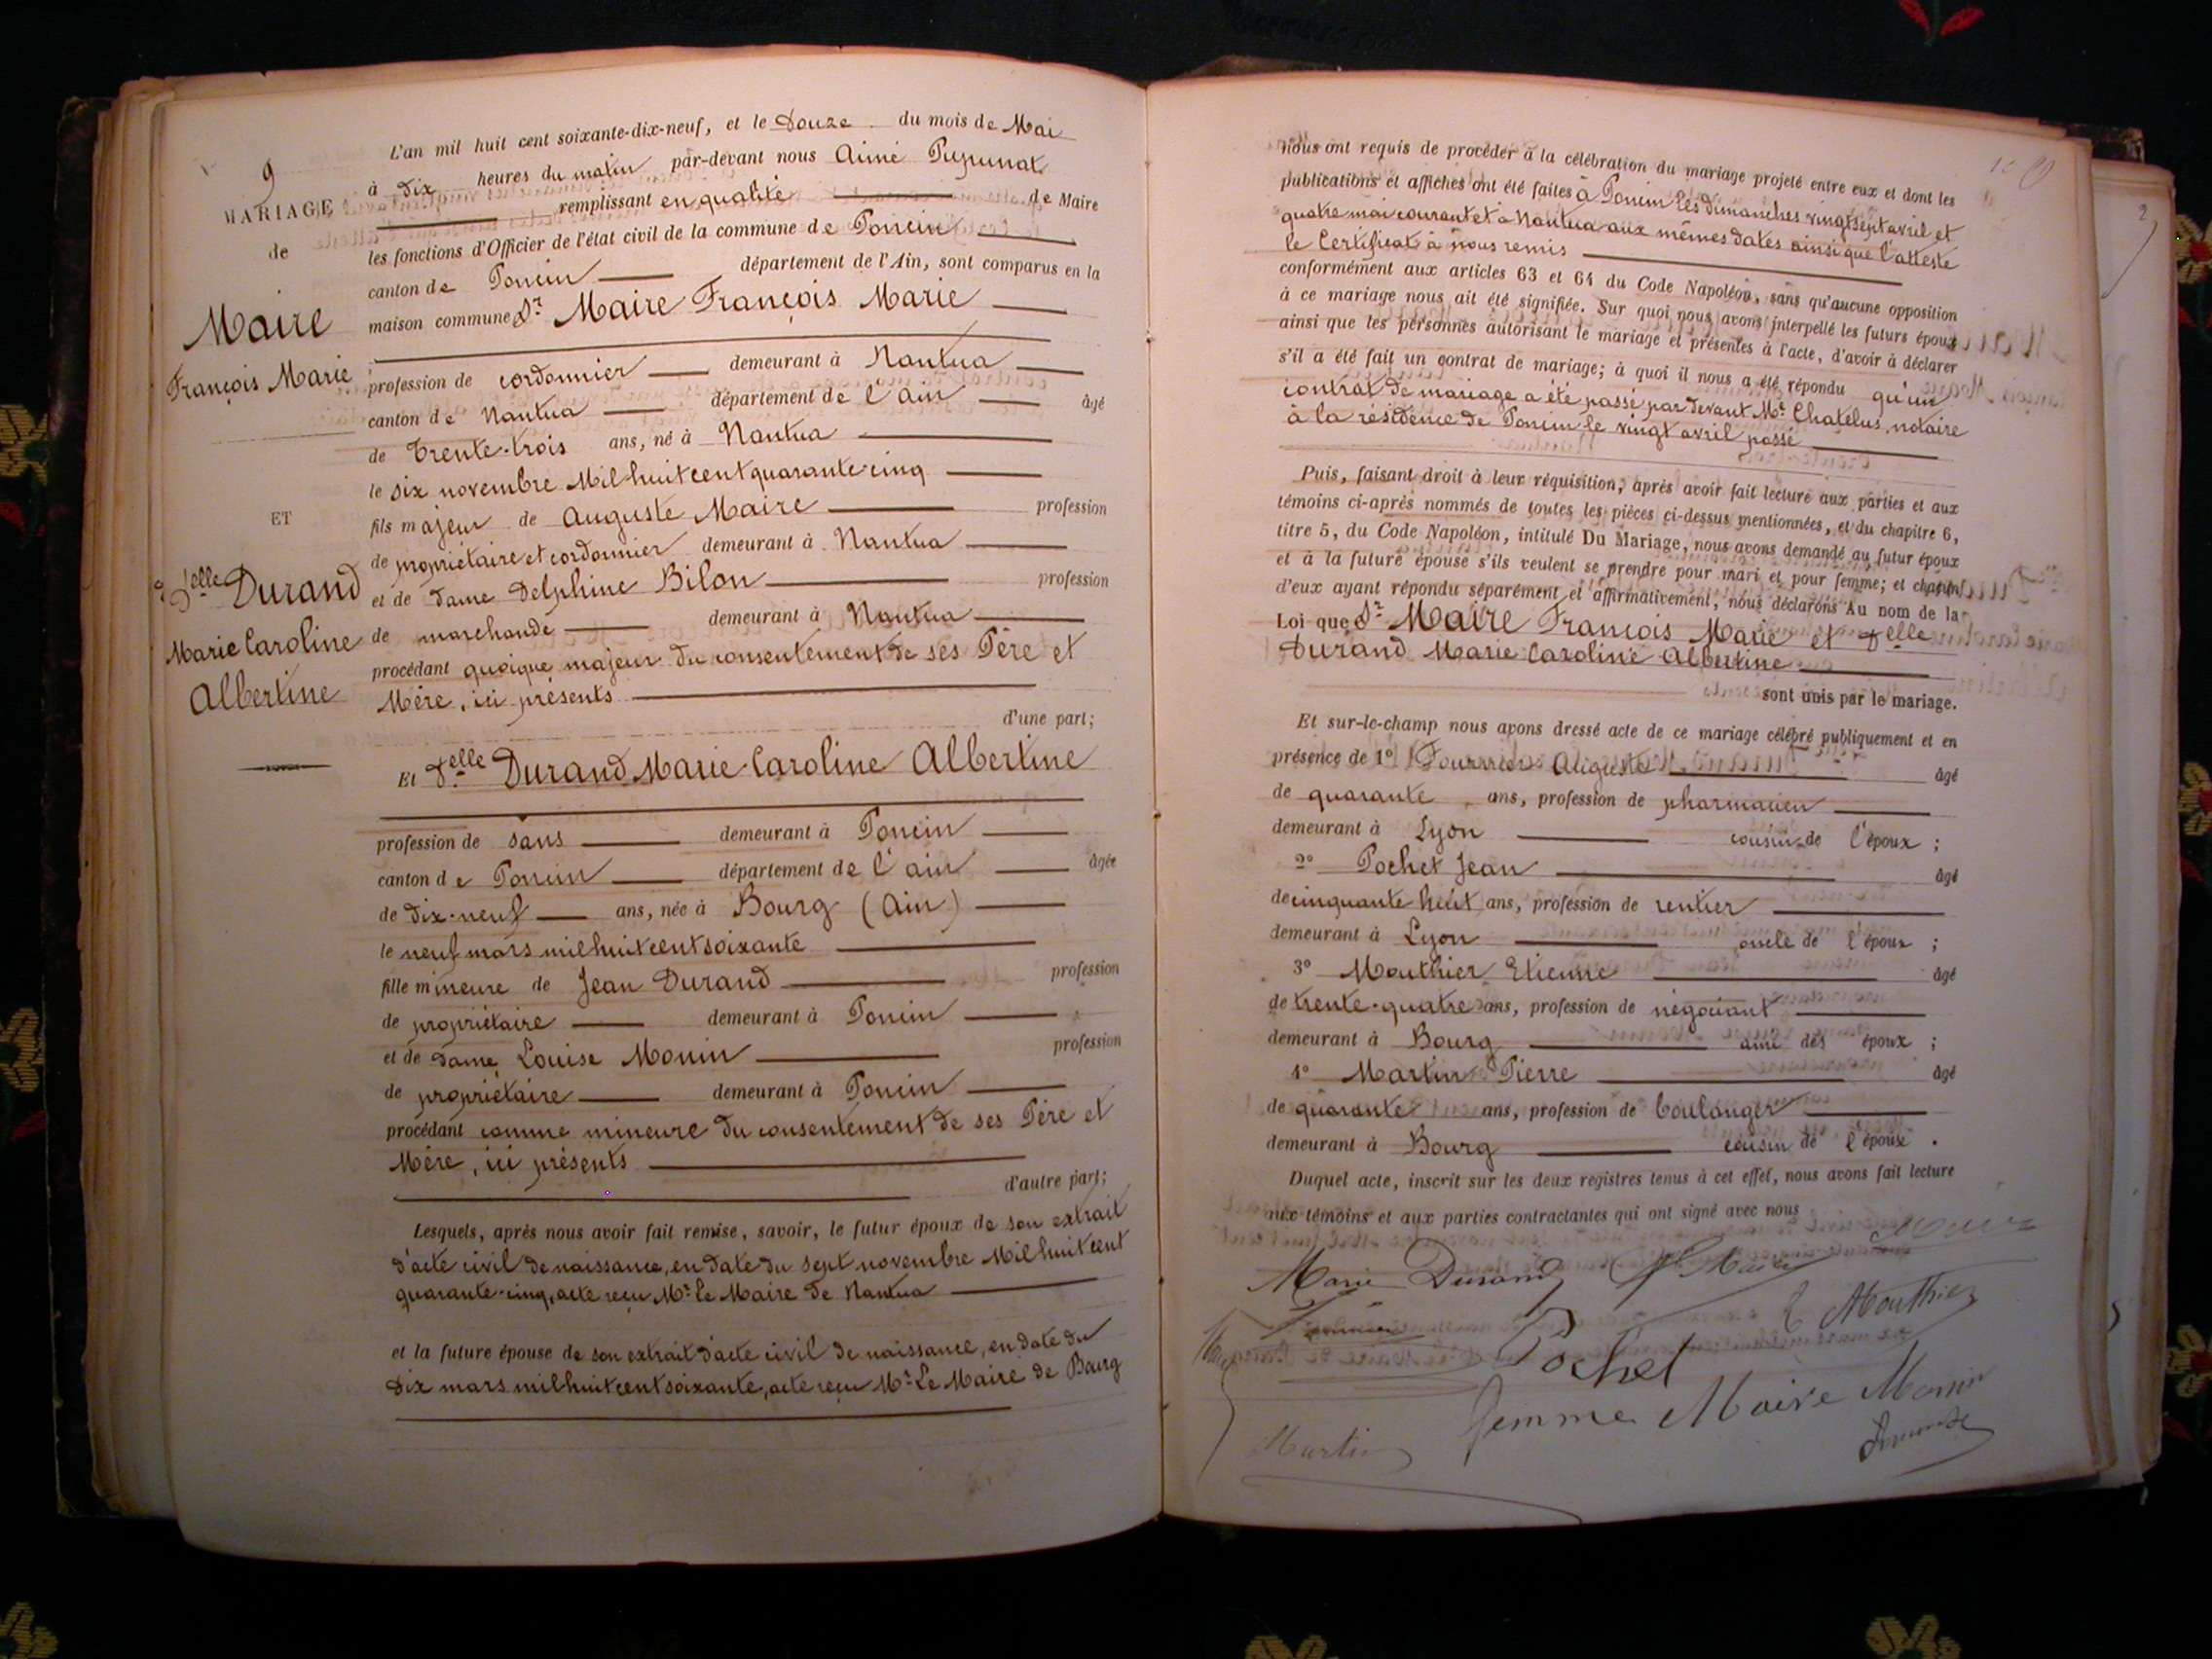 9
MARIAGE
de
Maire
François Marie
ET
Delle Durand
Marie Caroline
Albertine
L'an mil huit cent soixante-dix-neuf, et le Douze du mois de Mai
à Dix heures du matin par-devant nous Aimé
remplissant en qualité de Maire
les fonctions d'Officier de l'état civil de la commune de Poncin
canton de Poncin département de l'Ain, sont comparus en la
maison commune Sr Maire François Marie
profession de cordonnier demeurant à Nantua
canton de Nantua département de l'ain âgé
de Trente-trois ans, né à Nantua
le six novembre Mil huit cent quarante-cinq
fils majeur de Auguste Maire profession
de propriétaire et cordonnier demeurant à Nantua
et de Dame Delphine Bilon profession
de marchande demeurant à Nantua
procédant quoique majeur du consentement de ses Père et
Mère, ici présents
d'une part;
Et Delle Durand Marie Caroline Albertine
profession de sans demeurant à Poncin
canton de Poncin département de l'ain âgée
de Dix-neuf ans, née à Bourg (Ain)
le neuf mars mil huit cent soixante
fille mineure de Jean Durand profession
de propriétaire demeurant à Poncin
et de Dame Louise Monin profession
de propriétaire demeurant à Poncin
procédant comme mineure du consentement de ses Père et
Mère, ici présents
d'autre part;
Lesquels, après nous avoir fait remise, savoir, le futur époux de son extrait
d'acte civil de naissance, en date du sept novembre Mil huit cent
quarante-cinq, acte reçu Mr Le Maire de Nantua
et la future épouse de son extrait d'acte civil de naissance, en date du
Dix mars mil huit cent soixante, acte reçu Mr Le Maire de Bourg
nous ont requis de procéder à la célébration du mariage projeté entre eux et dont les
publications et affiches ont été faites à Poncin les dimanches vingt sept avril et
quatre mai courant et à Nantua aux mêmes dates ainsi que l'atteste
le Certificat à nous remis
conformément aux articles 63 et 64 du Code Napoléon, sans qu'aucune opposition
à ce mariage nous ait été signifiée. Sur quoi nous avons interpellé les futurs époux
ainsi que les personnes autorisant le mariage et présentes à l'acte, d'avoir à déclarer
s'il a été fait un contrat de mariage; à quoi il nous a été répondu qu'un
contrat de mariage a été passé par devant Mr Chatelus, notaire
à la résidence de Poncin le vingt avril passé
Puis, faisant droit à leur réquisition, après avoir fait lecture aux parties et aux
témoins ci-après nommés de toutes les pièces ci-dessus mentionnées, et du chapitre 6,
titre 5, du Code Napoléon, intitulé Du Mariage, nous avons demandé au futur époux
et à la future épouse s'ils veulent se prendre pour mari et pour femme; et chacun
d'eux ayant répondu séparément et affirmativement, nous déclarons Au nom de la
Loi que Sr Maire François Marie et Delle
Durand Marie Caroline Albertine
sont unis par le mariage.
Et sur-le-champ nous avons dressé acte de ce mariage célébré publiquement et en
présence de 1° Auguste âgé
de quarante ans, profession de pharmacien
demeurant à Lyon cousin de l'époux ;
2° Pochet Jean âgé
de cinquante huit ans, profession de rentier
demeurant à Lyon oncle de l'époux ;
3° Mouthier Etienne âgé
de trente-quatre ans, profession de négociant
demeurant à Bourg ami des époux ;
4° Martin Pierre âgé
de quarante ans, profession de boulanger
demeurant à Bourg cousin de l'époux .
Duquel acte, inscrit sur les deux registres tenus à cet effet, nous avons fait lecture
aux témoins et aux parties contractantes qui ont signé avec nous
Marie Durand
Mouthier
Pochet
femme Maire Monin
Martin